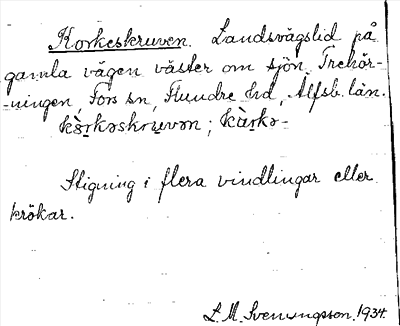 Korkeskruven. Landsvägslid på
gamla vägen väster om sjön Trehör-
-ningen, Fors sn, Flundre hd, Älfsb. län.
kàr̥kəskruvən; kàr̥kə-
Stigning i flera vindlingar eller
krökar.
L. M. Svenungsson. 1934.